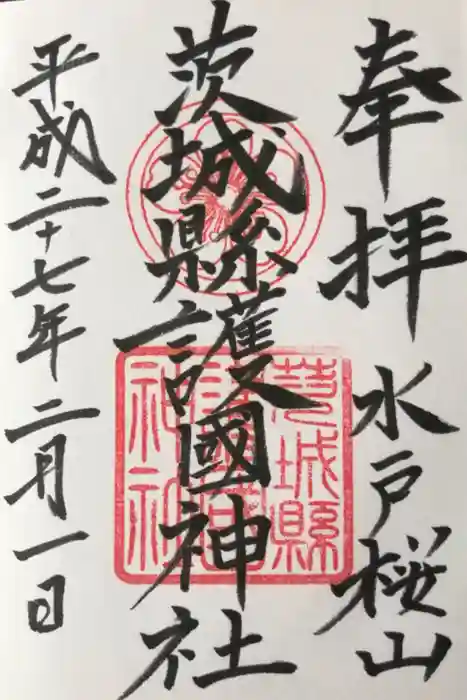 奉拝 水戸桜山
茨城縣護國神社
平成二十七年二月一日
茨城縣
護國
神社